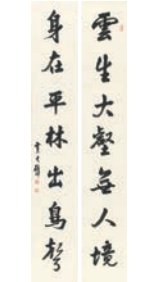 雲生大壑無人境
身在平林出鳥聲